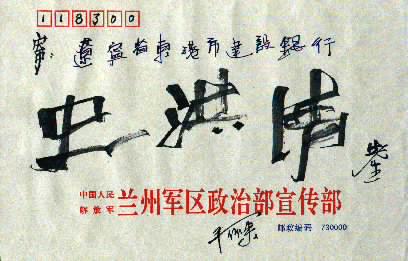 118300
遼寧省東港市建設銀行
洪
先生
中国人民
解放军
兰州军区政治部宣传部
邮政编码 730000